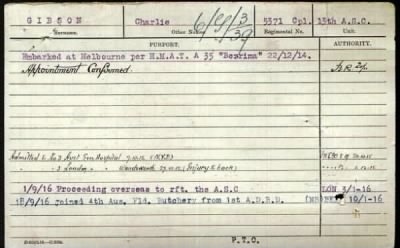 GIBSON Charlie 6/6/3/39 5371 Cpl. 15th A.S.C.
Surname. Other Names Regimental No. Unit.
PURPORT. AUTHORITY.
Embarked at Melbourne per H.M.A.T. A 35 "Berrima" 22/12/14.
Appointment Confirmed.
Admitted to No 3 Aust Gen Hospital
3 London Wandsworth (Injury to back)
1/9/16 Proceeding overseas to rft. the A.S.C LON 3/1-16
18/9/16 joined 4th Aus. Fld. Butchery from 1st A.D.B.D. 10/1-16
P.T.O.